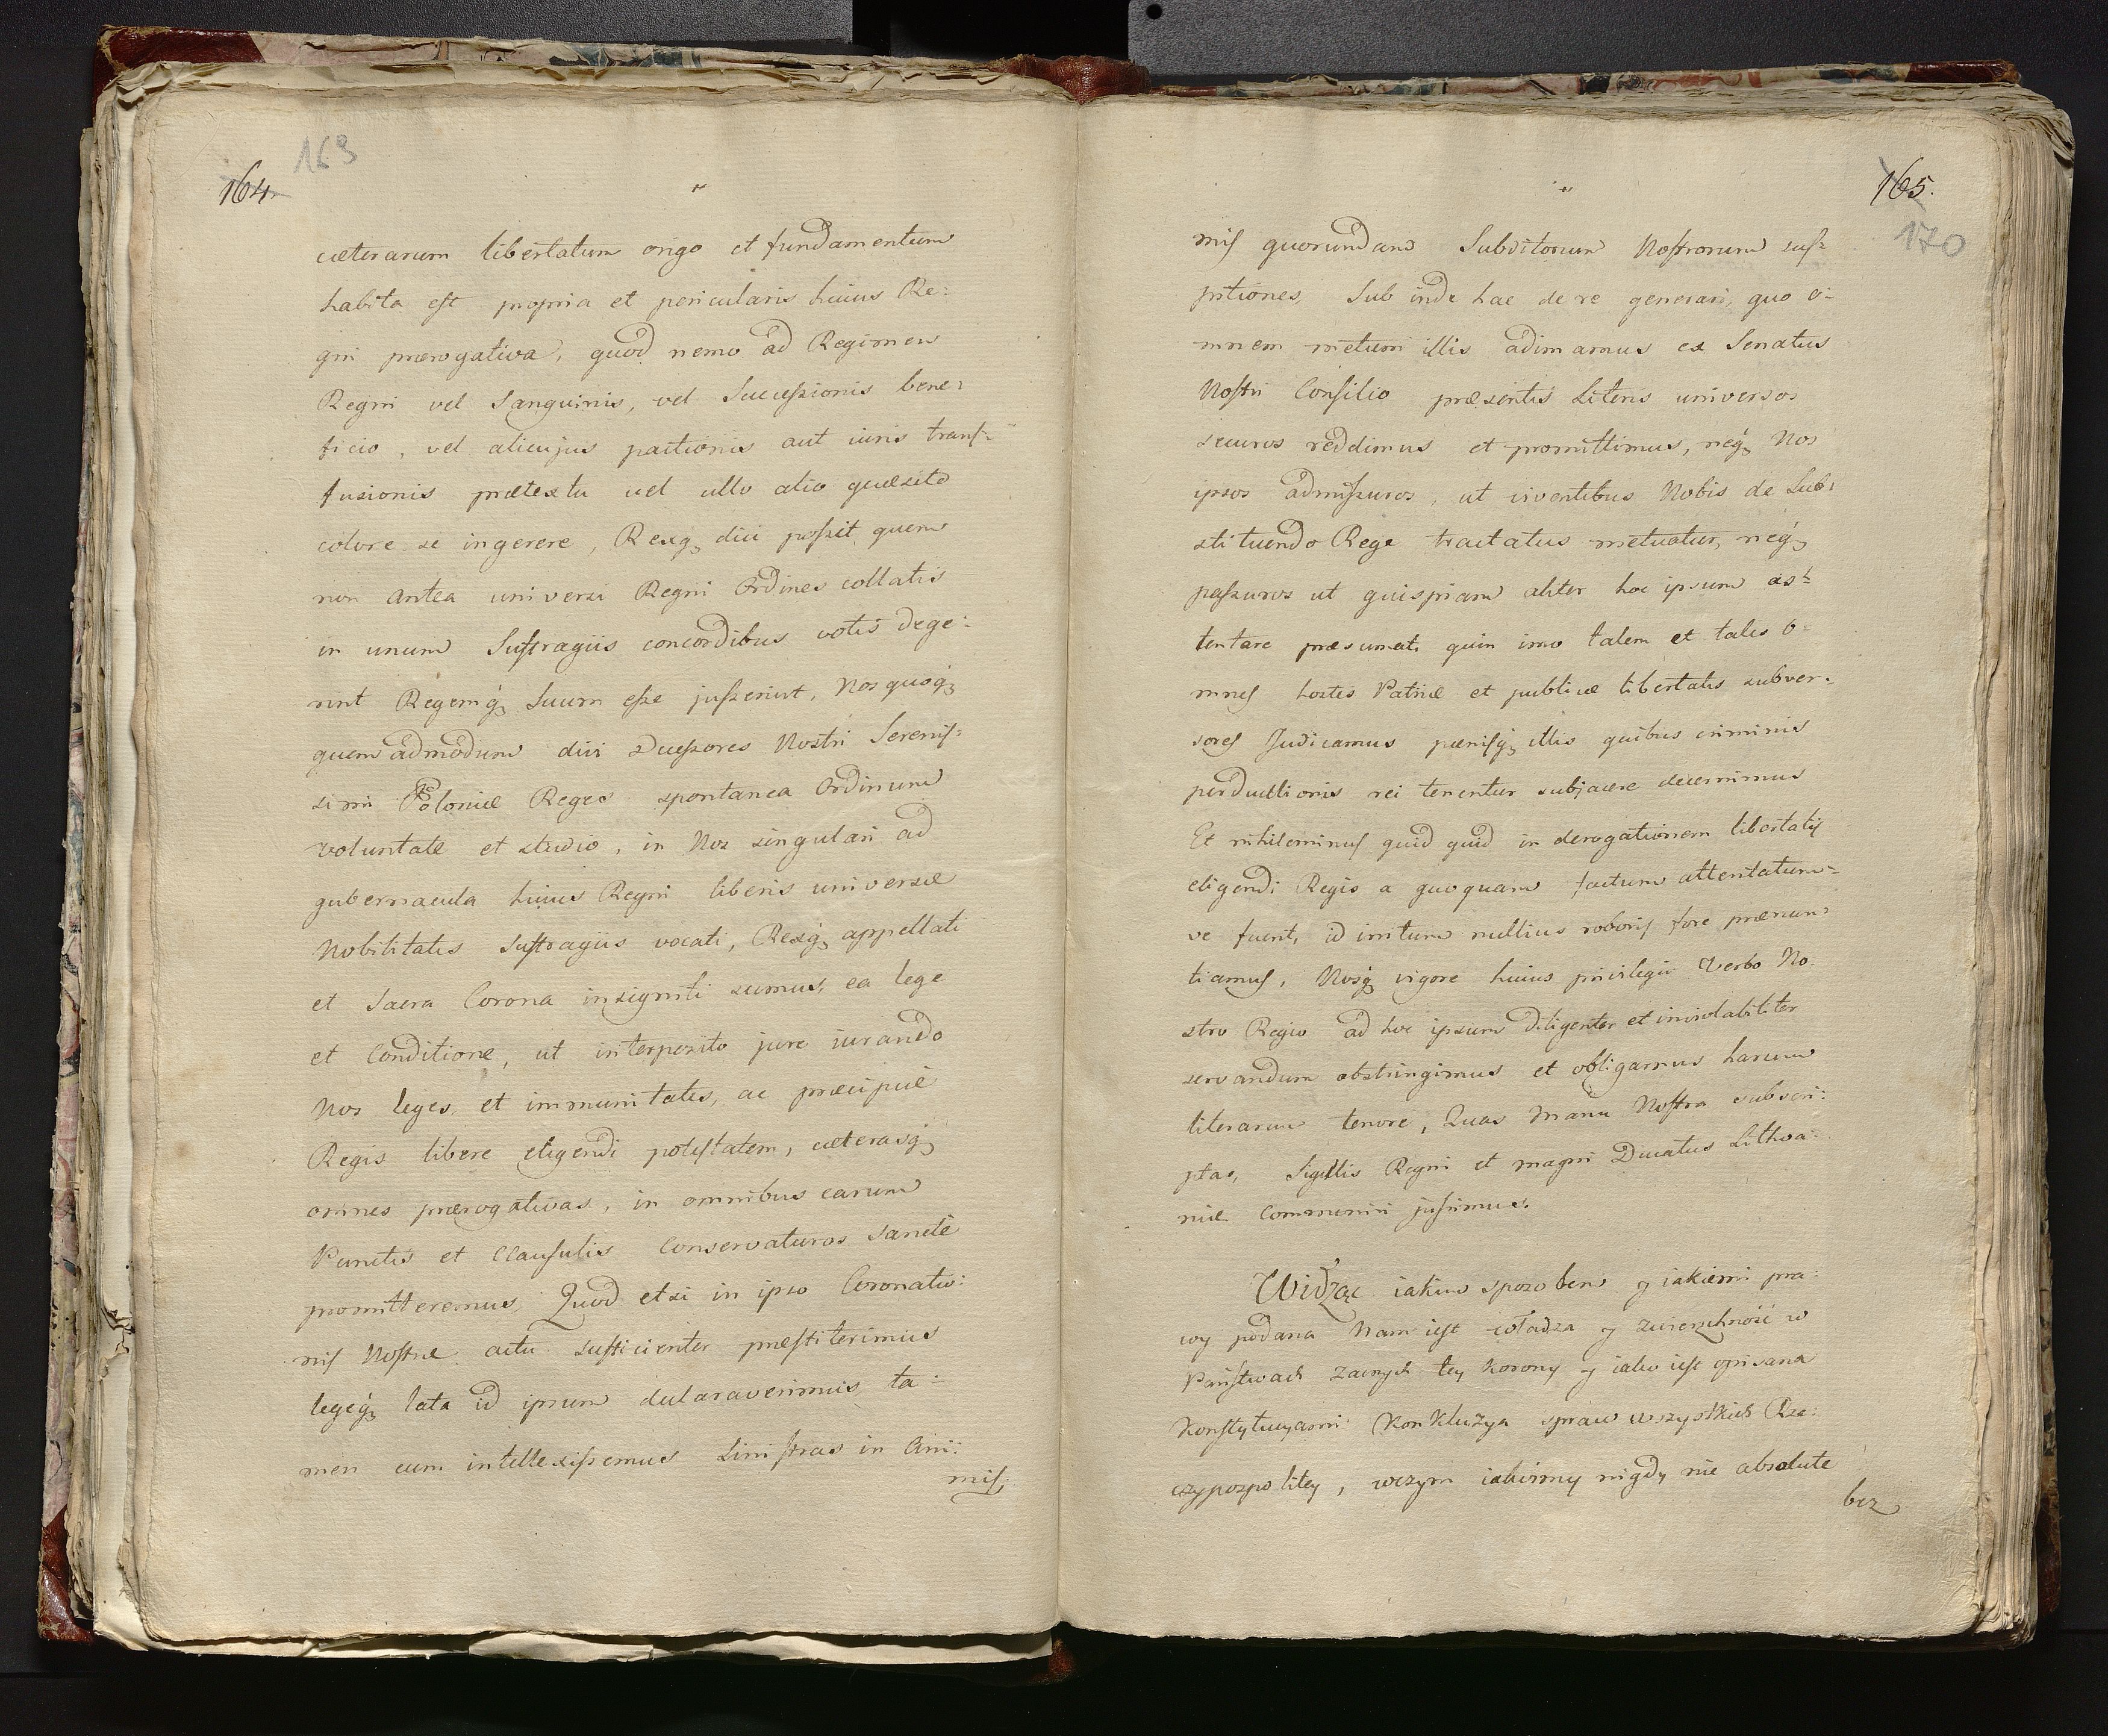 169
164
cæterarum libertatum origo et fundamentum
habita est propria et pericularis huius Re:
gni prærogativa, quod nemo ad Regimen
Regni vel Sanguinis, vel Successionis bene:
ficio, vel alicujus pactionis aut iuris transf:
fusionis prætextu vel ullo alio quæsito
colore se ingerere, Rexq₃ dici possit quem
non antea universi Regni Ordines collatis
in unum Suffragiis concordibus votis dege:
rint Regemq₃ Suum esse jusserint, Nos quoq₃
quem admodum divi Ducessores Nostri Serenis:
simi Poloniæ Reges spontanea Ordinum
voluntate et studio, in Nos singulari ad
gubernacula huius Regni liberis universæ
Nobilitatis Suffragiis vocati, Rexq₃ appellati
et Sacra Corona insigniti sumus, ea lege
et Conditione, ut interposito jure iurando
Nos leges, et immunitates, ac præcipuè
Regis libere eligendi potestatem, cæterasq₃
omnes prærogativas, in omnibus earum
Punctis et Clausulis Conservaturos Sanctè
promitteremus, Quod etsi in ipso Coronatio:
nis Nostræ actu sufficienter præstiterimus
legeq₃ lata id ipsum declaraverimus ta:
men cum intellexissemus Sinistras in Ani:
mis
165.
170
mis quorundam Subditorum Nostrorum sus:
pitiones, Sub inde hac de re generari, quo o:
mnem metum illis adimamus ex Senatus
Nostri Consilio præsentis Literis universos
securos reddimus et promittimus, neq₃ Nos
ipsos admissuros, ut viventibus Nobis de Sub:
stituendo Rege tractatus metuatur, neq₃
passuros ut quispiam aliter hoc ipsum at:
tentare præsumat, quin imo talem et tales o:
mnes hostes Patriæ et publicæ libertatis subver:
sores Judicamus pænisq₃ illis quibus criminis
perduellionis rei tenentur subjacere decernimus
Et nihilominus quid quid in derogationem libertatis
eligendi Regis a quoquam factum attentatum:
ve fuerit, id irritum nullius roboris fore prænun:
tiamus, Nosq₃ vigore huius privilegii Verbo No:
stro Regio ad hoc ipsum diligenter et inviolabiliter
servandum obstringimus et obligamus harum
literarum tenore, Quas Manu Nostra subscri:
ptas, Sigillis Regni et magni Ducatus Lithva:
niæ Communiri jussimus.
Widząc iakim sposobem y iakiemi pra:
wy podana Nam iest władza y zwierzchność w
Państwach zacnych tey Korony y iako iest opisana
Konstytucyami Konkluzya spraw wszystkich Rze:
czypospolitey, wczym iakośmy nigdy nie absolute
bez